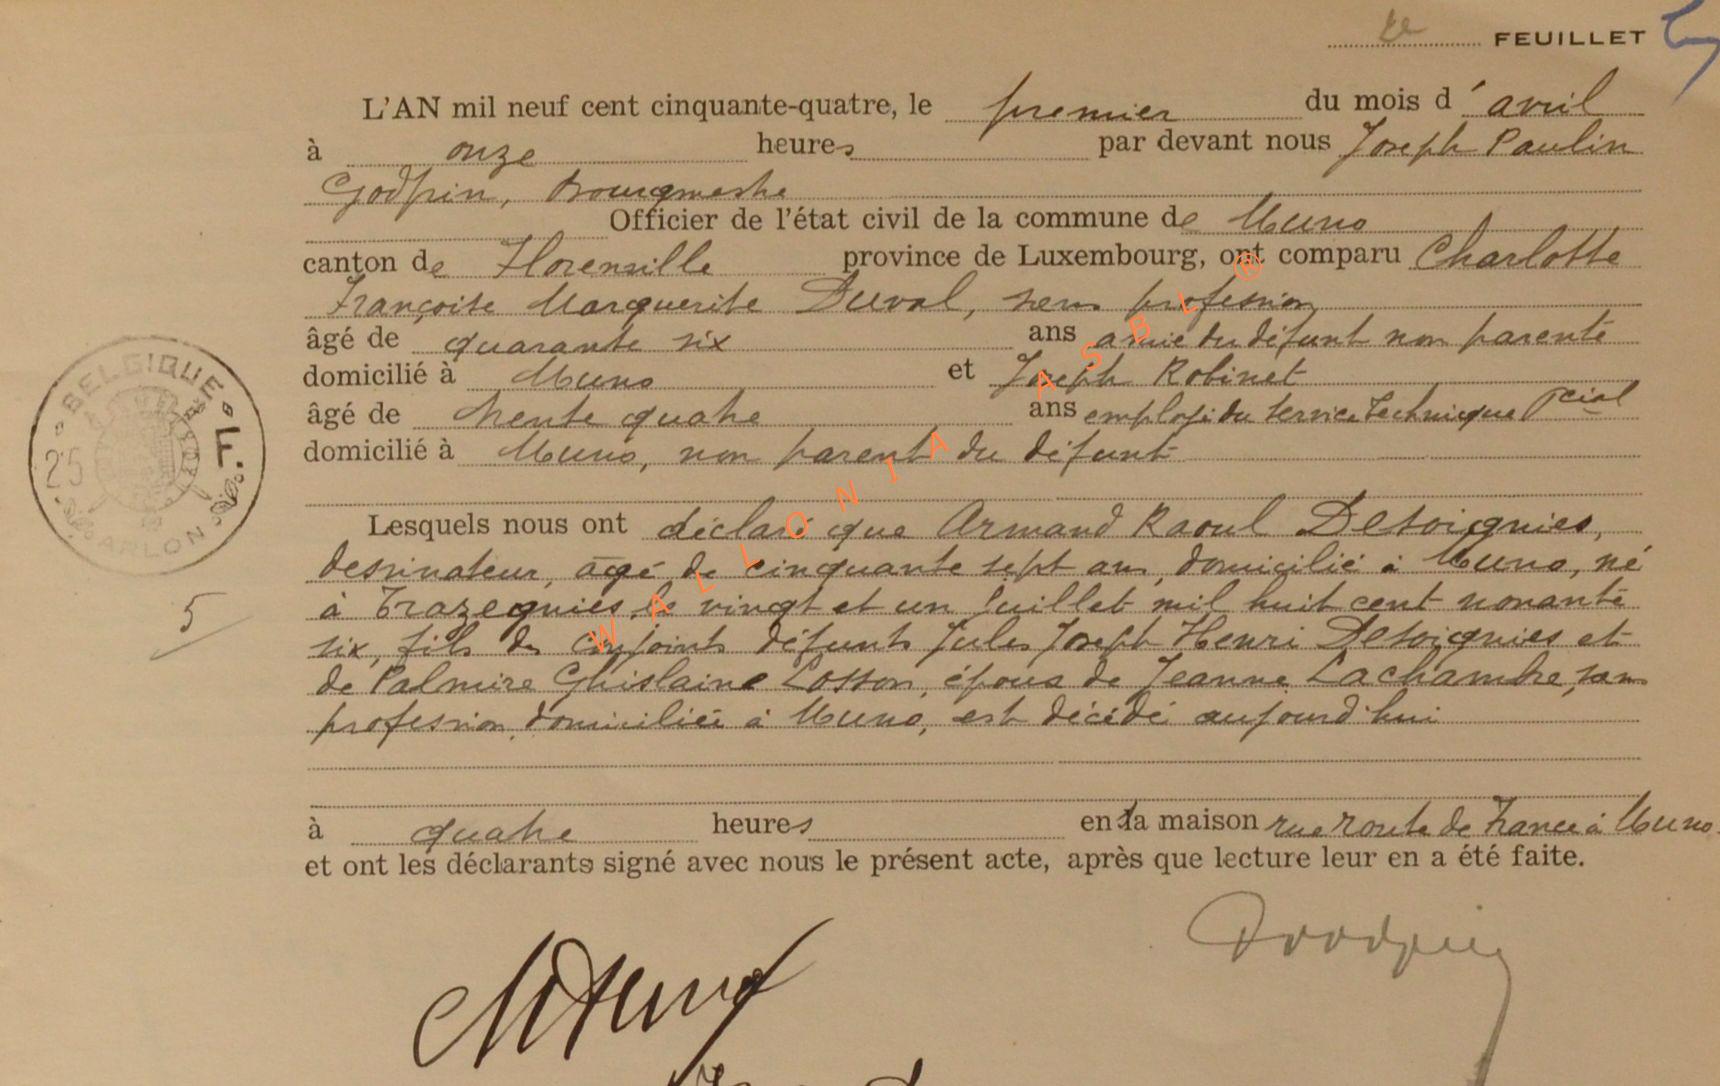 FEUILLET
L'AN mil neuf cent cinquante-quatre, le premier du mois d'avril
à onze heures par devant nous Joseph Paulin
Godfrin, Bourgmestre
Officier de l'état civil de la commune de Muno
canton de Florenville province de Luxembourg, ont comparu Charlotte
Françoise Marguerite Duval, sans profession
âgé de quarante six ans amie du défunt non parente
domicilié à Muno et Joseph Robinet
âgé de trente quatre ans employé du service technique pcial
domicilié à Muno, non parent du défunt
Lesquels nous ont déclaré que Armand Raoul Desoignies,
dessinateur, âgé de cinquante sept ans, domicilié à Muno, né
à Trazegnies le vingt et un juillet mil huit cent nonante
six, fils des conjoints défunts Jules Joseph Henri Desoignies et
de Palmire Ghislaine Losson, époux de Jeanne Lachambre, sans
profession, domiciliée à Muno, est décédé aujourd'hui
à quatre heures en la maison rue Route de France à Muno.
et ont les déclarants signé avec nous le présent acte, après que lecture leur en a été faite.
BELGIQUE
25 F.
ARLON
5
WALLONIA ASBL ®